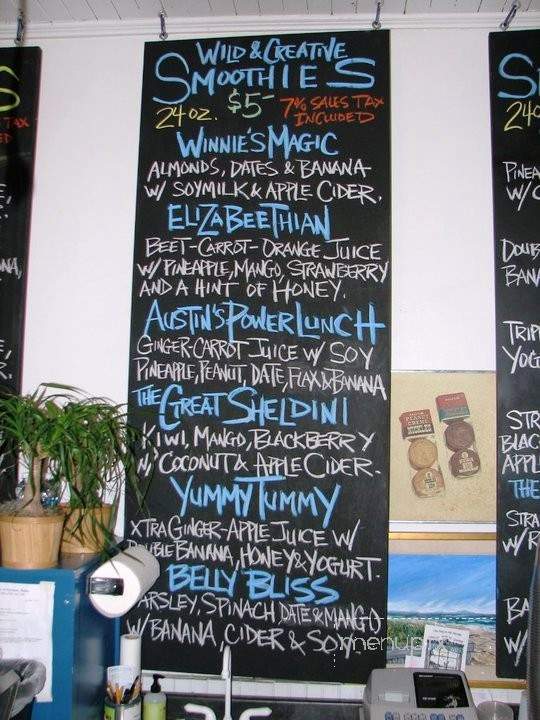 WILD & CREATIVE
SMOOTHIES
24 OZ. $5- 7% SALES TAX
INCLUDED
WINNIE'S MAGIC
ALMONDS, DATES & BANANA
W/ SOYMILK & APPLE CIDER.
ELIZABEETHIAN
BEET-CARROT-ORANGE JUICE
W/ PINEAPPLE, MANGO, STRAWBERRY
AND A HINT OF HONEY.
AUSTIN'S POWER LUNCH
GINGER-CARROT JUICE W/ SOY
PINEAPPLE, PEANUT, DATE, FLAX & BANANA
THE GREAT SHELDINI
KIWI, MANGO, BLACKBERRY
W/ COCONUT & APPLE CIDER.
YUMMY TUMMY
XTRA GINGER-APPLE JUICE W/
DOUBLE BANANA, HONEY & YOGURT.
BELLY BLISS
PARSLEY, SPINACH, DATE & MANGO
W/ BANANA, CIDER & SOY.
menupix
S
24
PINEA
W/ C
DOUB
BANA
TRIP
YOG
STR
BLAC
APPL
THE
STRA
W/ R
BA
W/